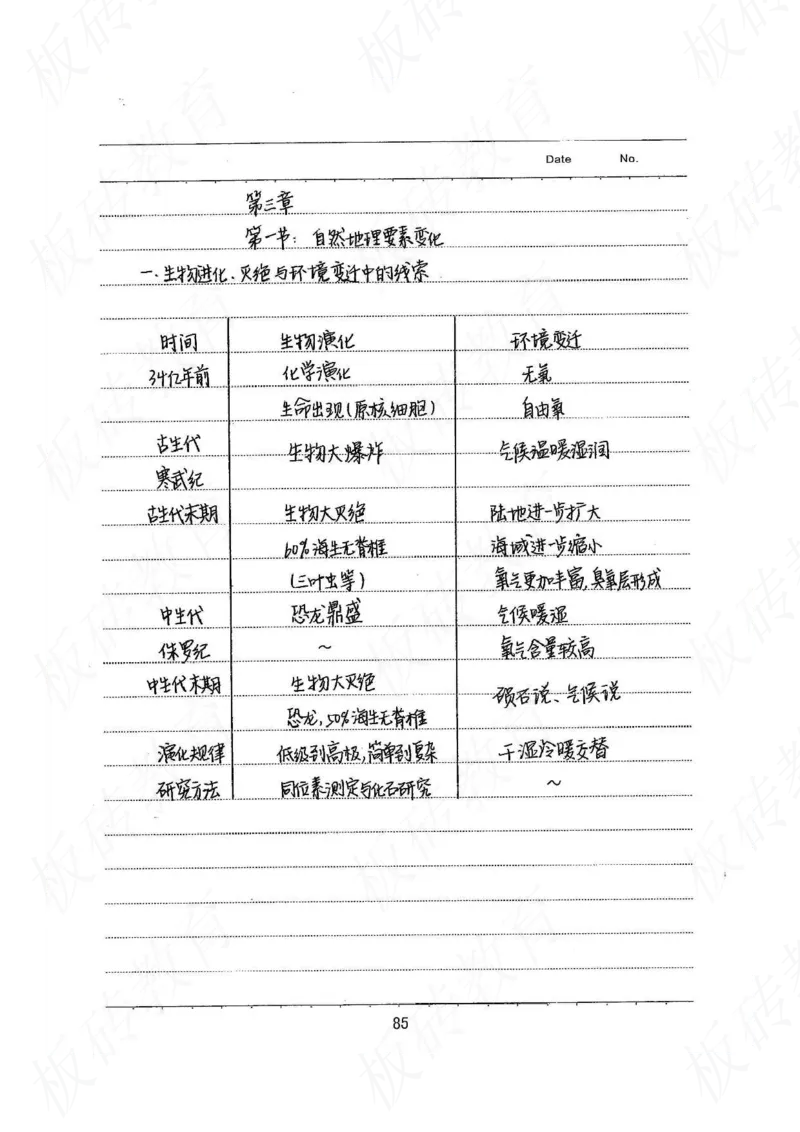 Date No.
第三章
第一节：自然地理要素变化
一.生物进化、灭绝与环境变迁中的线索
时间 生物演化 环境变迁
34亿年前 化学演化 无氧
生命出现(原核细胞) 自由氧
古生代 生物大爆炸 气候温暖湿润
寒武纪
古生代末期 生物大灭绝 陆地进一步扩大
60%海生无脊椎 海域进一步缩小
(三叶虫等) 氧气更加丰富,臭氧层形成
中生代 恐龙鼎盛 气候暖湿
侏罗纪 ~ 氧气含量较高
中生代末期 生物大灭绝 陨石说、气候说
恐龙,50%海生无脊椎
演化规律 低级到高极,简单到复杂 干湿冷暖交替
研究方法 同位素测定与化石研究 ~
85
板砖教育